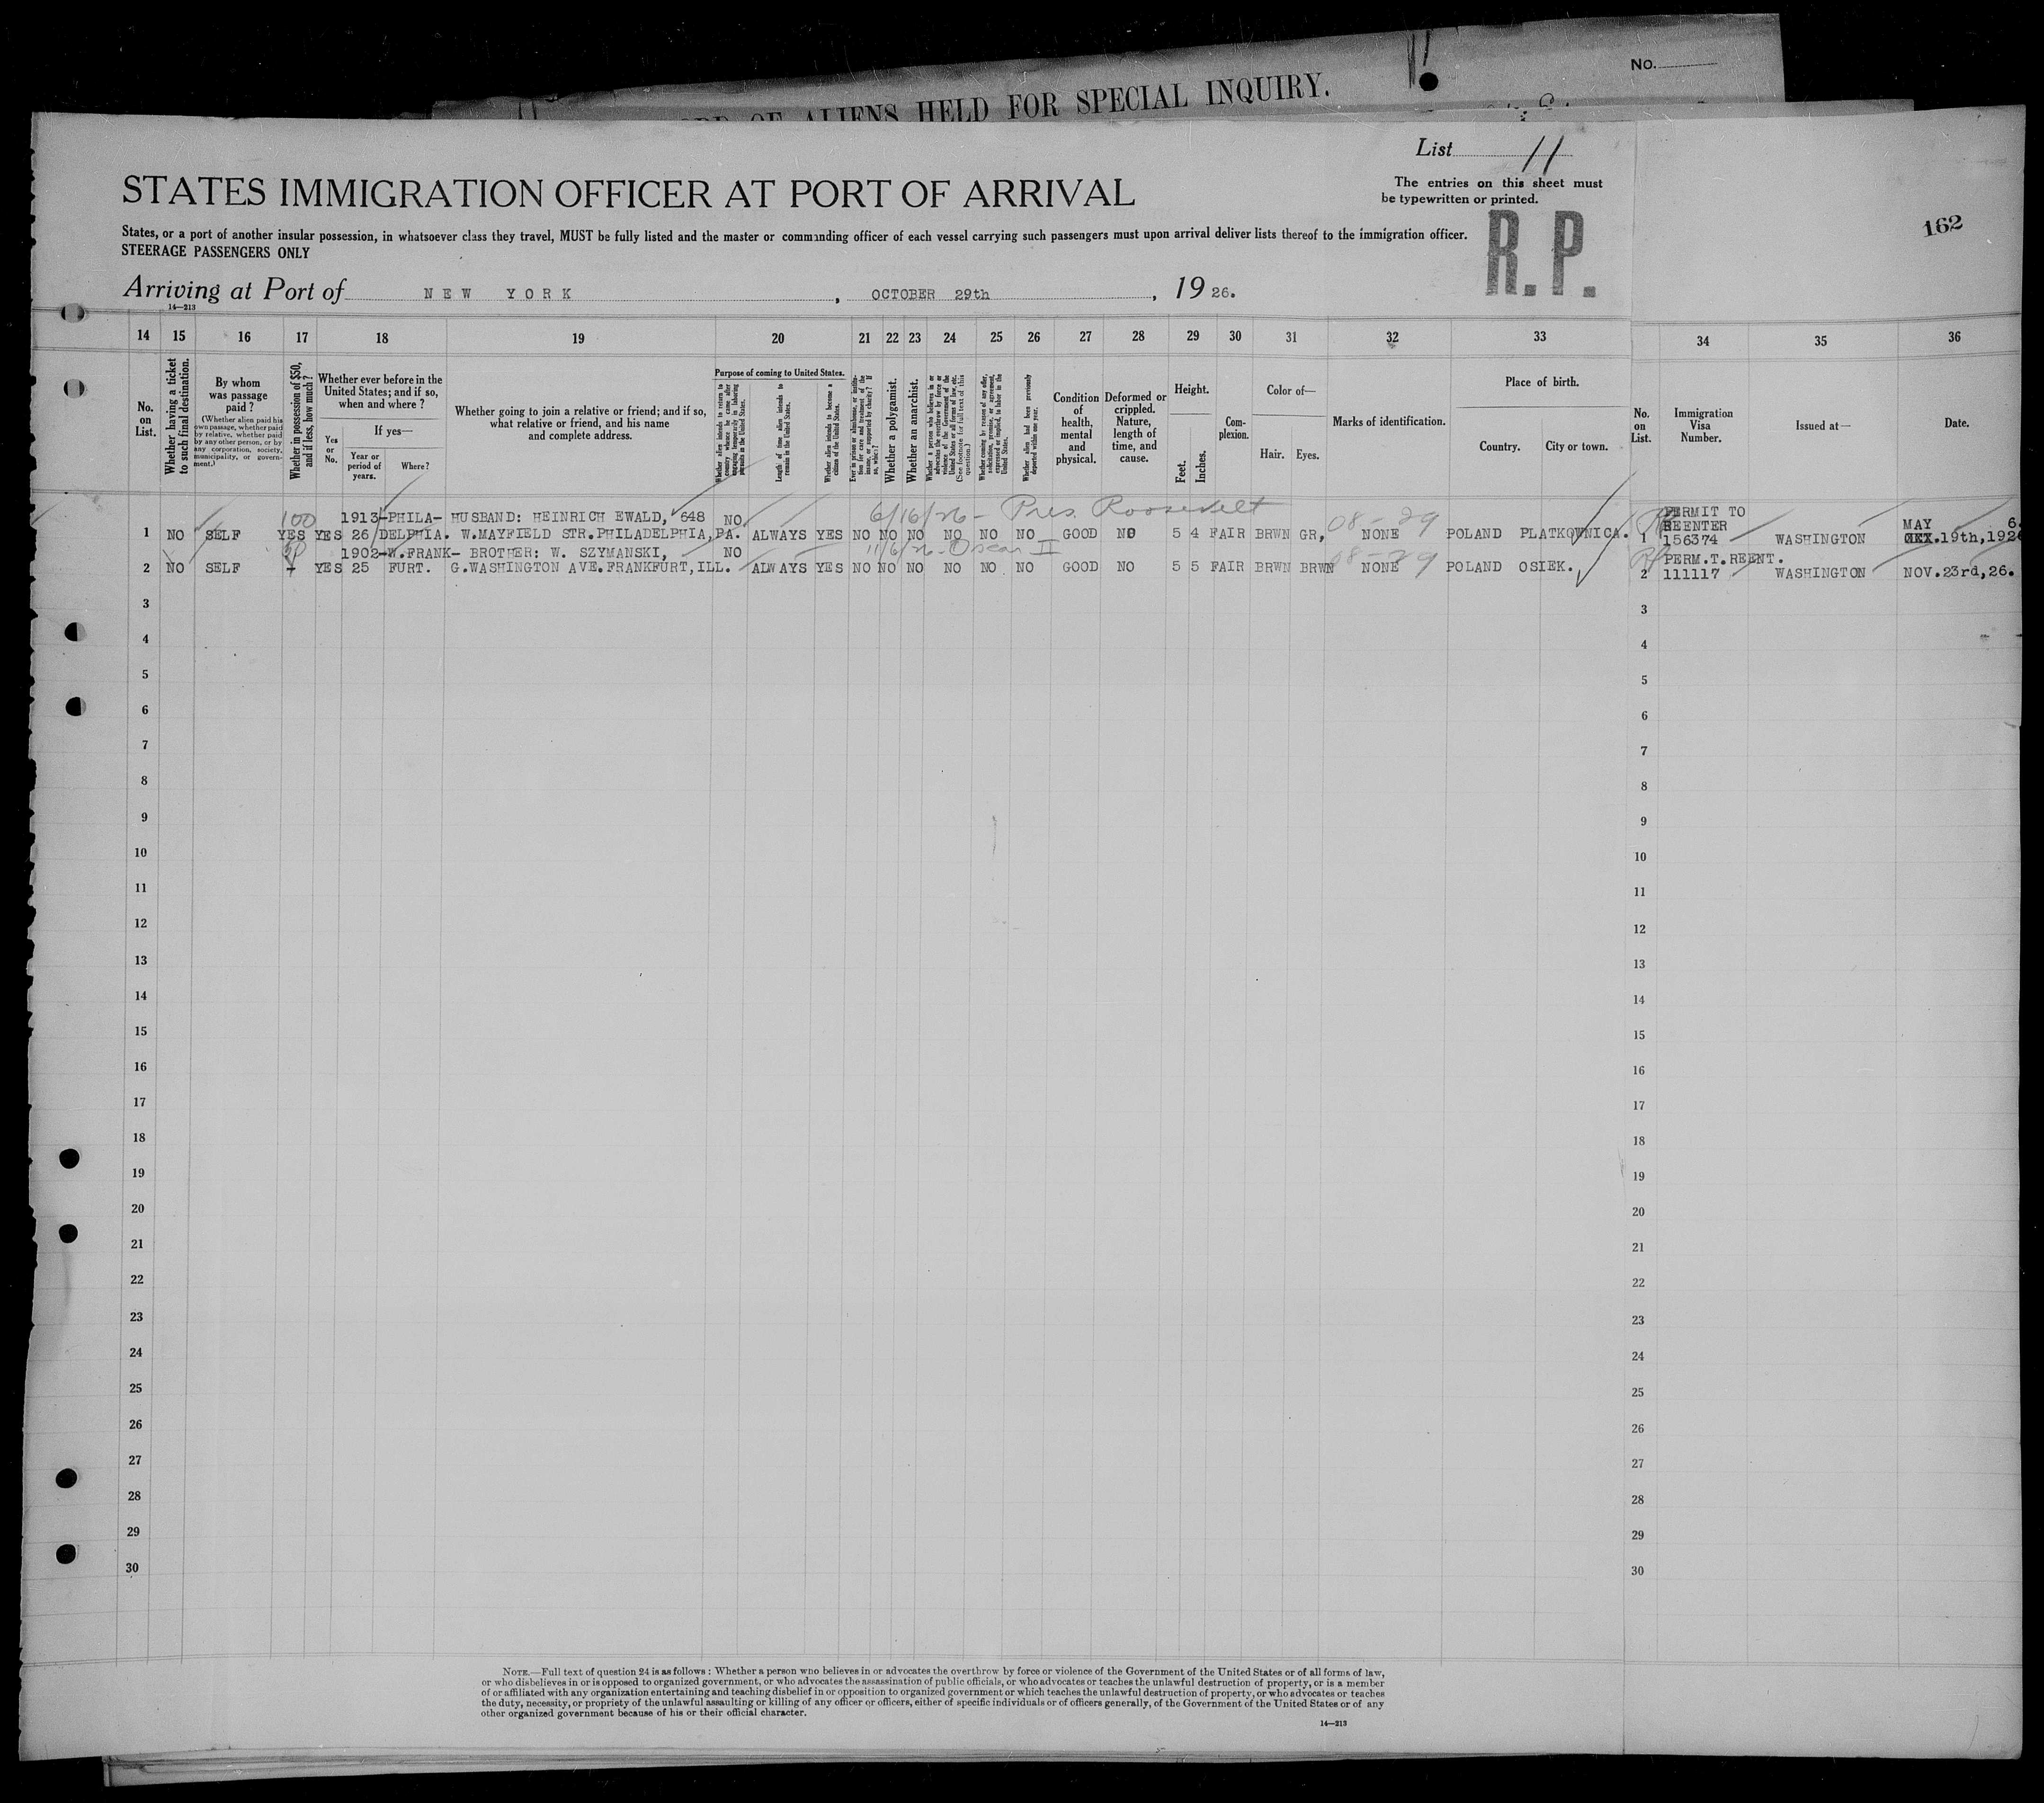 No.
OF ALIENS HELD FOR SPECIAL INQUIRY.
List 11
STATES IMMIGRATION OFFICER AT PORT OF ARRIVAL
The entries on this sheet must
be typewritten or printed.
R.P.
162
States, or a port of another insular possession, in whatsoever class they travel, MUST be fully listed and the master or commanding officer of each vessel carrying such passengers must upon arrival deliver lists thereof to the immigration officer.
STEERAGE PASSENGERS ONLY
Arriving at Port of NEW YORK, OCTOBER 29th, 1926.
14—213
14 15 16 17 18 19 20 21 22 23 24 25 26 27 28 29 30 31 32 33 34 35 36
No. on List.
Whether having a ticket to such final destination.
By whom was passage paid?
(Whether alien paid his own passage, whether paid by relative, whether paid by any other person, or by any corporation, society, municipality, or government.)
Whether in possession of $50, and if less, how much?
Whether ever before in the United States; and if so, when and where?
Yes or No.
If yes—
Year or period of years.
Where?
Whether going to join a relative or friend; and if so, what relative or friend, and his name and complete address.
Purpose of coming to United States.
Whether alien intends to return to country whence he came after engaging temporarily in laboring pursuits in the United States.
Length of time alien intends to remain in the United States.
Whether alien intends to become a citizen of the United States.
Ever in prison or almshouse, or institution for care and treatment of the insane, or supported by charity? If so, which?
Whether a polygamist.
Whether an anarchist.
Whether a person who believes in or advocates the overthrow by force or violence of the Government of the United States or all forms of law, etc. (See footnote for full text of this question.)
Whether coming by reason of any offer, solicitation, promise, or agreement, expressed or implied, to labor in the United States.
Whether alien had been previously deported within one year.
Condition of health, mental and physical.
Deformed or crippled. Nature, length of time, and cause.
Height.
Feet. Inches.
Complexion.
Color of—
Hair. Eyes.
Marks of identification.
Place of birth.
Country. City or town.
No. on List.
Immigration Visa Number.
Issued at—
Date.
100 1913-PHILA- HUSBAND: HEINRICH EWALD, 648 NO 6/16/26 - Pres. Roosevelt 08-29 PERMIT TO
1 NO SELF YES YES 26 DELPHIA. W.MAYFIELD STR.PHILADELPHIA,PA. ALWAYS YES NO NO NO NO NO NO GOOD NO 5 4 FAIR BRWN GR, NONE POLAND PLATKOWNICA. REENTER MAY 6.
1 156374 WASHINGTON 19th,1926
50 1902-W.FRANK- BROTHER: W. SZYMANSKI, NO 11/6/26 - Oscar II 08-29 PERM.T.REENT.
2 NO SELF - YES 25 FURT. G.WASHINGTON AVE.FRANKFURT,ILL. ALWAYS YES NO NO NO NO NO NO GOOD NO 5 5 FAIR BRWN BRWN NONE POLAND OSIEK. 2 111117 WASHINGTON NOV.23rd,26.
3 3
4 4
5 5
6 6
7 7
8 8
9 9
10 10
11 11
12 12
13 13
14 14
15 15
16 16
17 17
18 18
19 19
20 20
21 21
22 22
23 23
24 24
25 25
26 26
27 27
28 28
29 29
30 30
NOTE.—Full text of question 24 is as follows: Whether a person who believes in or advocates the overthrow by force or violence of the Government of the United States or of all forms of law,
or who disbelieves in or is opposed to organized government, or who advocates the assassination of public officials, or who advocates or teaches the unlawful destruction of property, or is a member
of or affiliated with any organization entertaining and teaching disbelief in or opposition to organized government or which teaches the unlawful destruction of property, or who advocates or teaches
the duty, necessity, or propriety of the unlawful assaulting or killing of any officer or officers, either of specific individuals or of officers generally, of the Government of the United States or of any
other organized government because of his or their official character.
14—213